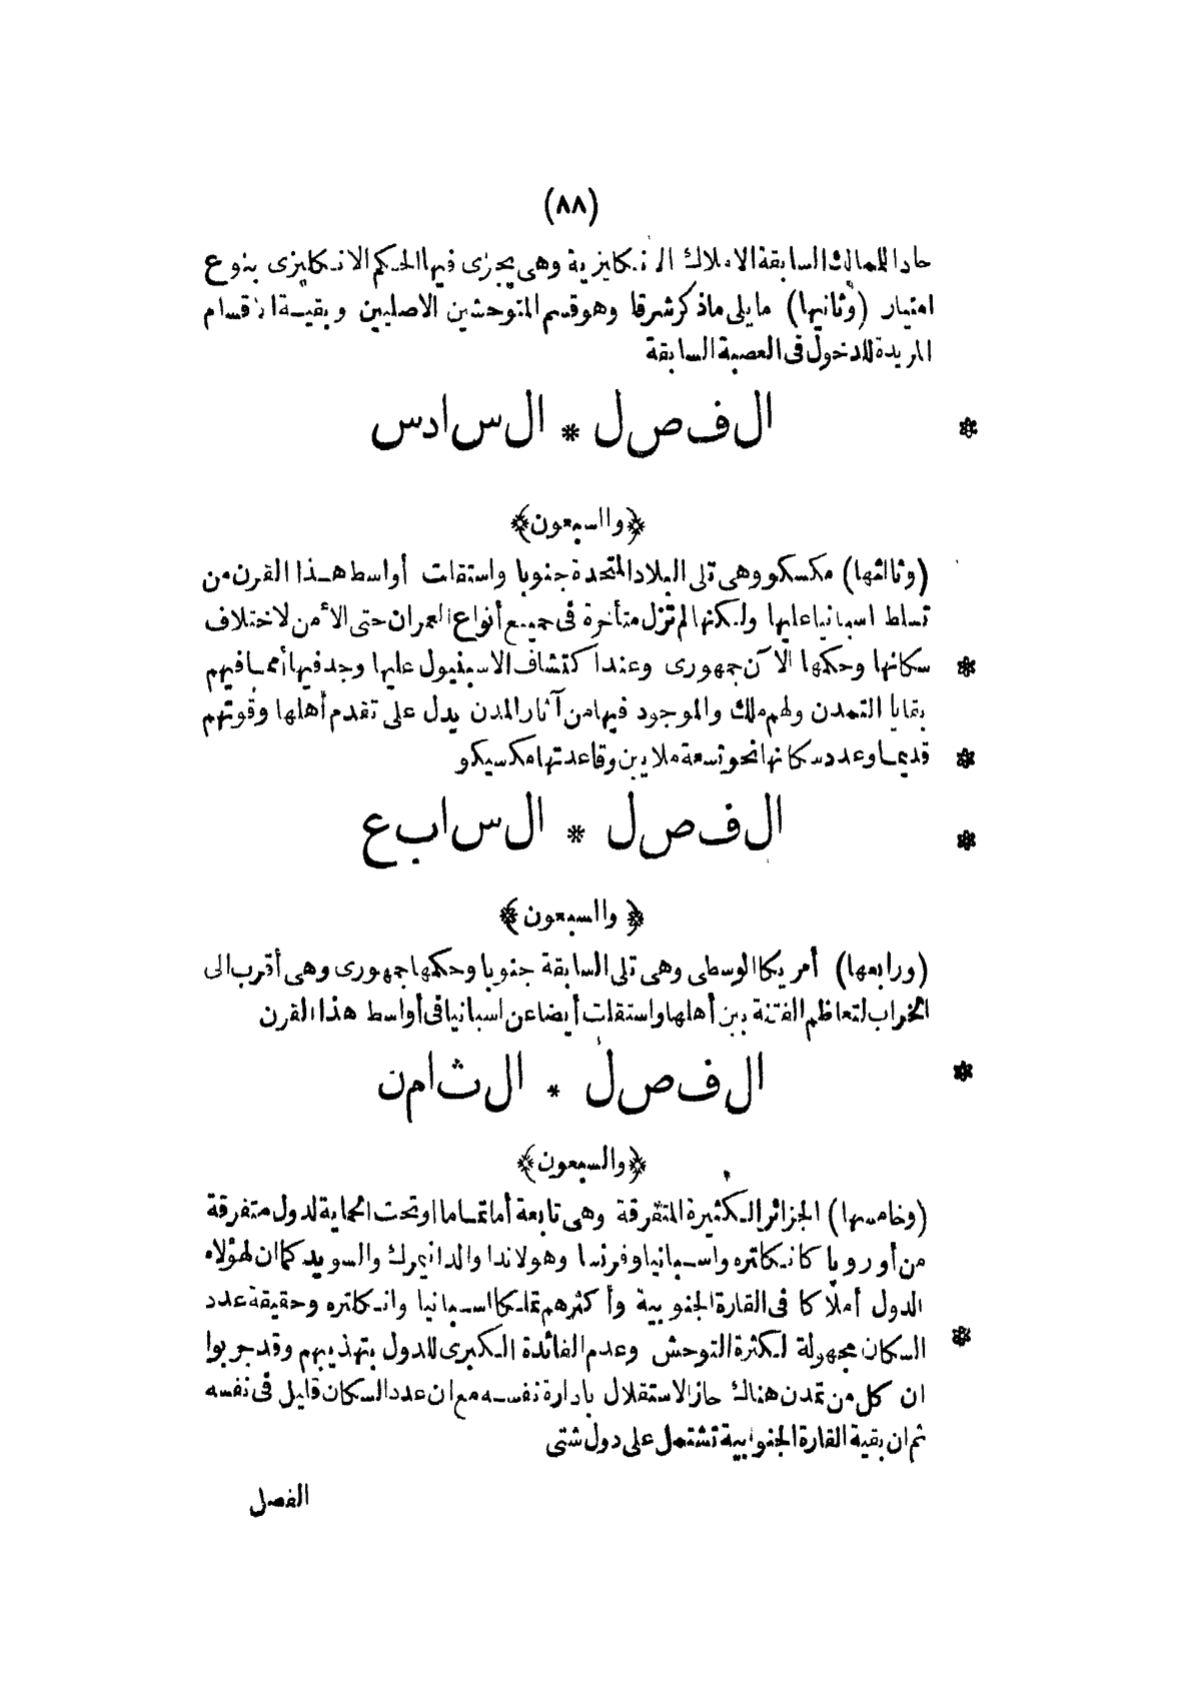 (٨٨)
حادا للممالك السابقة الاملاك الانكليزية وهى يجرى فيها الحكم الانكليزى بنوع
امتياز (وثانيها) مايلى ماذكر شرقا وهو قسم المتوحشين الاصليين وبقيـة الاقسام
المريدة للدخول فى العصبة السابقة
الفصل * السادس *
﴿والسبعون﴾
(وثالثها) مكسكو وهى تلى البلاد المتحدة جنوبا واستقلت أواسط هـذا القرن من
تسلط اسبانيا عليها ولكنها لم تزل متأخرة فى جميع أنواع العمران حتى الأمن لاختلاف
سكانها وحكمها الآن جمهورى وعند اكتشاف الاسبنيول عليها وجد فيها أممـا فيهم *
بقايا التمدن ولهم ملك والموجود فيها من آثار المدن يدل على تقدم أهلها وقوتهم
قديمـا وعدد سكانها نحو تسعة ملايين وقاعدتها مكسيكو *
الفصل * السابع *
﴿والسبعون﴾
(ورابعها) أمريكا الوسطى وهى تلى السابقة جنوبا وحكمها جمهورى وهى أقرب الى
الخراب لتعاظم الفتنة بين أهلها واستقلت أيضا عن اسبانيا فى أواسط هذا القرن
الفصل * الثامن *
﴿والسبعون﴾
(وخامسها) الجزائر الـكثيرة المتفرقة وهى تابعة أما تمـاما او تحت الحماية لدول متفرقة
من أوروبا كانـكلتره واسـبانيا وفرنسا وهولاندا والدانيمرك والسويد كما ان لهؤلاء
الدول أملاكا فى القارة الجنوبية وأكثرهم تملـكا اسـبانيا وانـكلتره وحقيقة عدد
السكان مجهولة لـكثرة التوحش وعدم الفائدة الـكبرى للدول بتهذيبهم وقد جربوا *
ان كل من تمدن هناك حاز الاستقلال بادارة نفسـه مع ان عدد السكان قليل فى نفسه
ثم ان بقية القارة الجنوبية تشتمل على دول شتى
الفصل